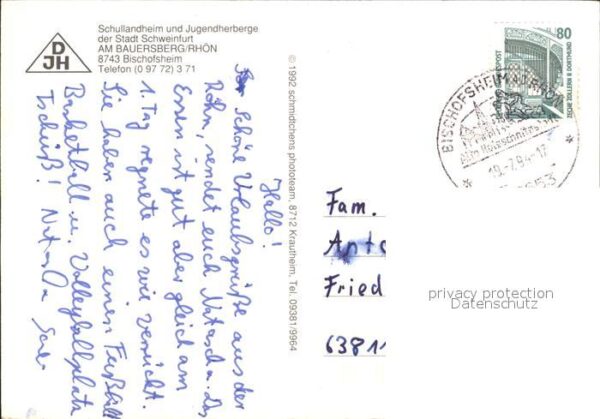 Schullandheim und Jugendherberge
der Stadt Schweinfurt
AM BAUERSBERG/RHÖN
8743 Bischofsheim
Telefon (0 97 72) 3 71
D
JH
© 1992 schmidtchens phototeam, 8712 Krautheim, Tel. 09381/9964
Hallo!
Schöne Urlaubsgrüße aus der
Röhn, sendet euch Natascha. Das
Essen ist gut aber gleich am
1. Tag regnete es wie verrückt.
Sie haben auch einen Fußball
Basketball u. Volleyballplatz
Tschüß! Natascha
80
DEUTSCHE BUNDESPOST
ZECHE ZOLLERN II DORTMUND
BISCHOFSHEIM A D RHÖN
Holzschnitz
19.-7.94-17
Fam.
Anto
Fried
63811
privacy protection
Datenschutz